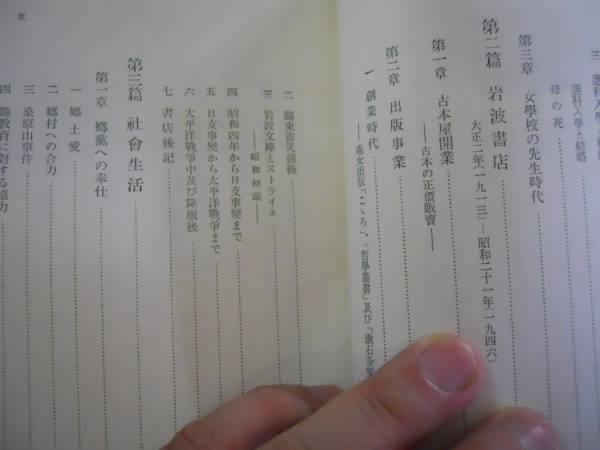 三 選科入學と結婚
母の死
第三章 女學校の先生時代
第二篇 岩波書店
大正二年(一九一三)—昭和二十一年(一九四六)
第一章 古本屋開業
——古本の正價販賣——
第二章 出版事業
一 創業時代
——處女出版「こゝろ」、「哲學叢書」及び「漱石全集
二 關東震災前後
三 岩波文庫とストライキ
——昭和初頭——
四 昭和四年から日支事變まで
五 日支事變から太平洋戰爭まで
六 太平洋戰爭中及び降服後
七 書店後記
第三篇 社會生活
第一章 鄕黨への奉仕
一 鄕土愛
二 鄕村への合力
三 桑原山事件
四 縣教育に對する協力
次